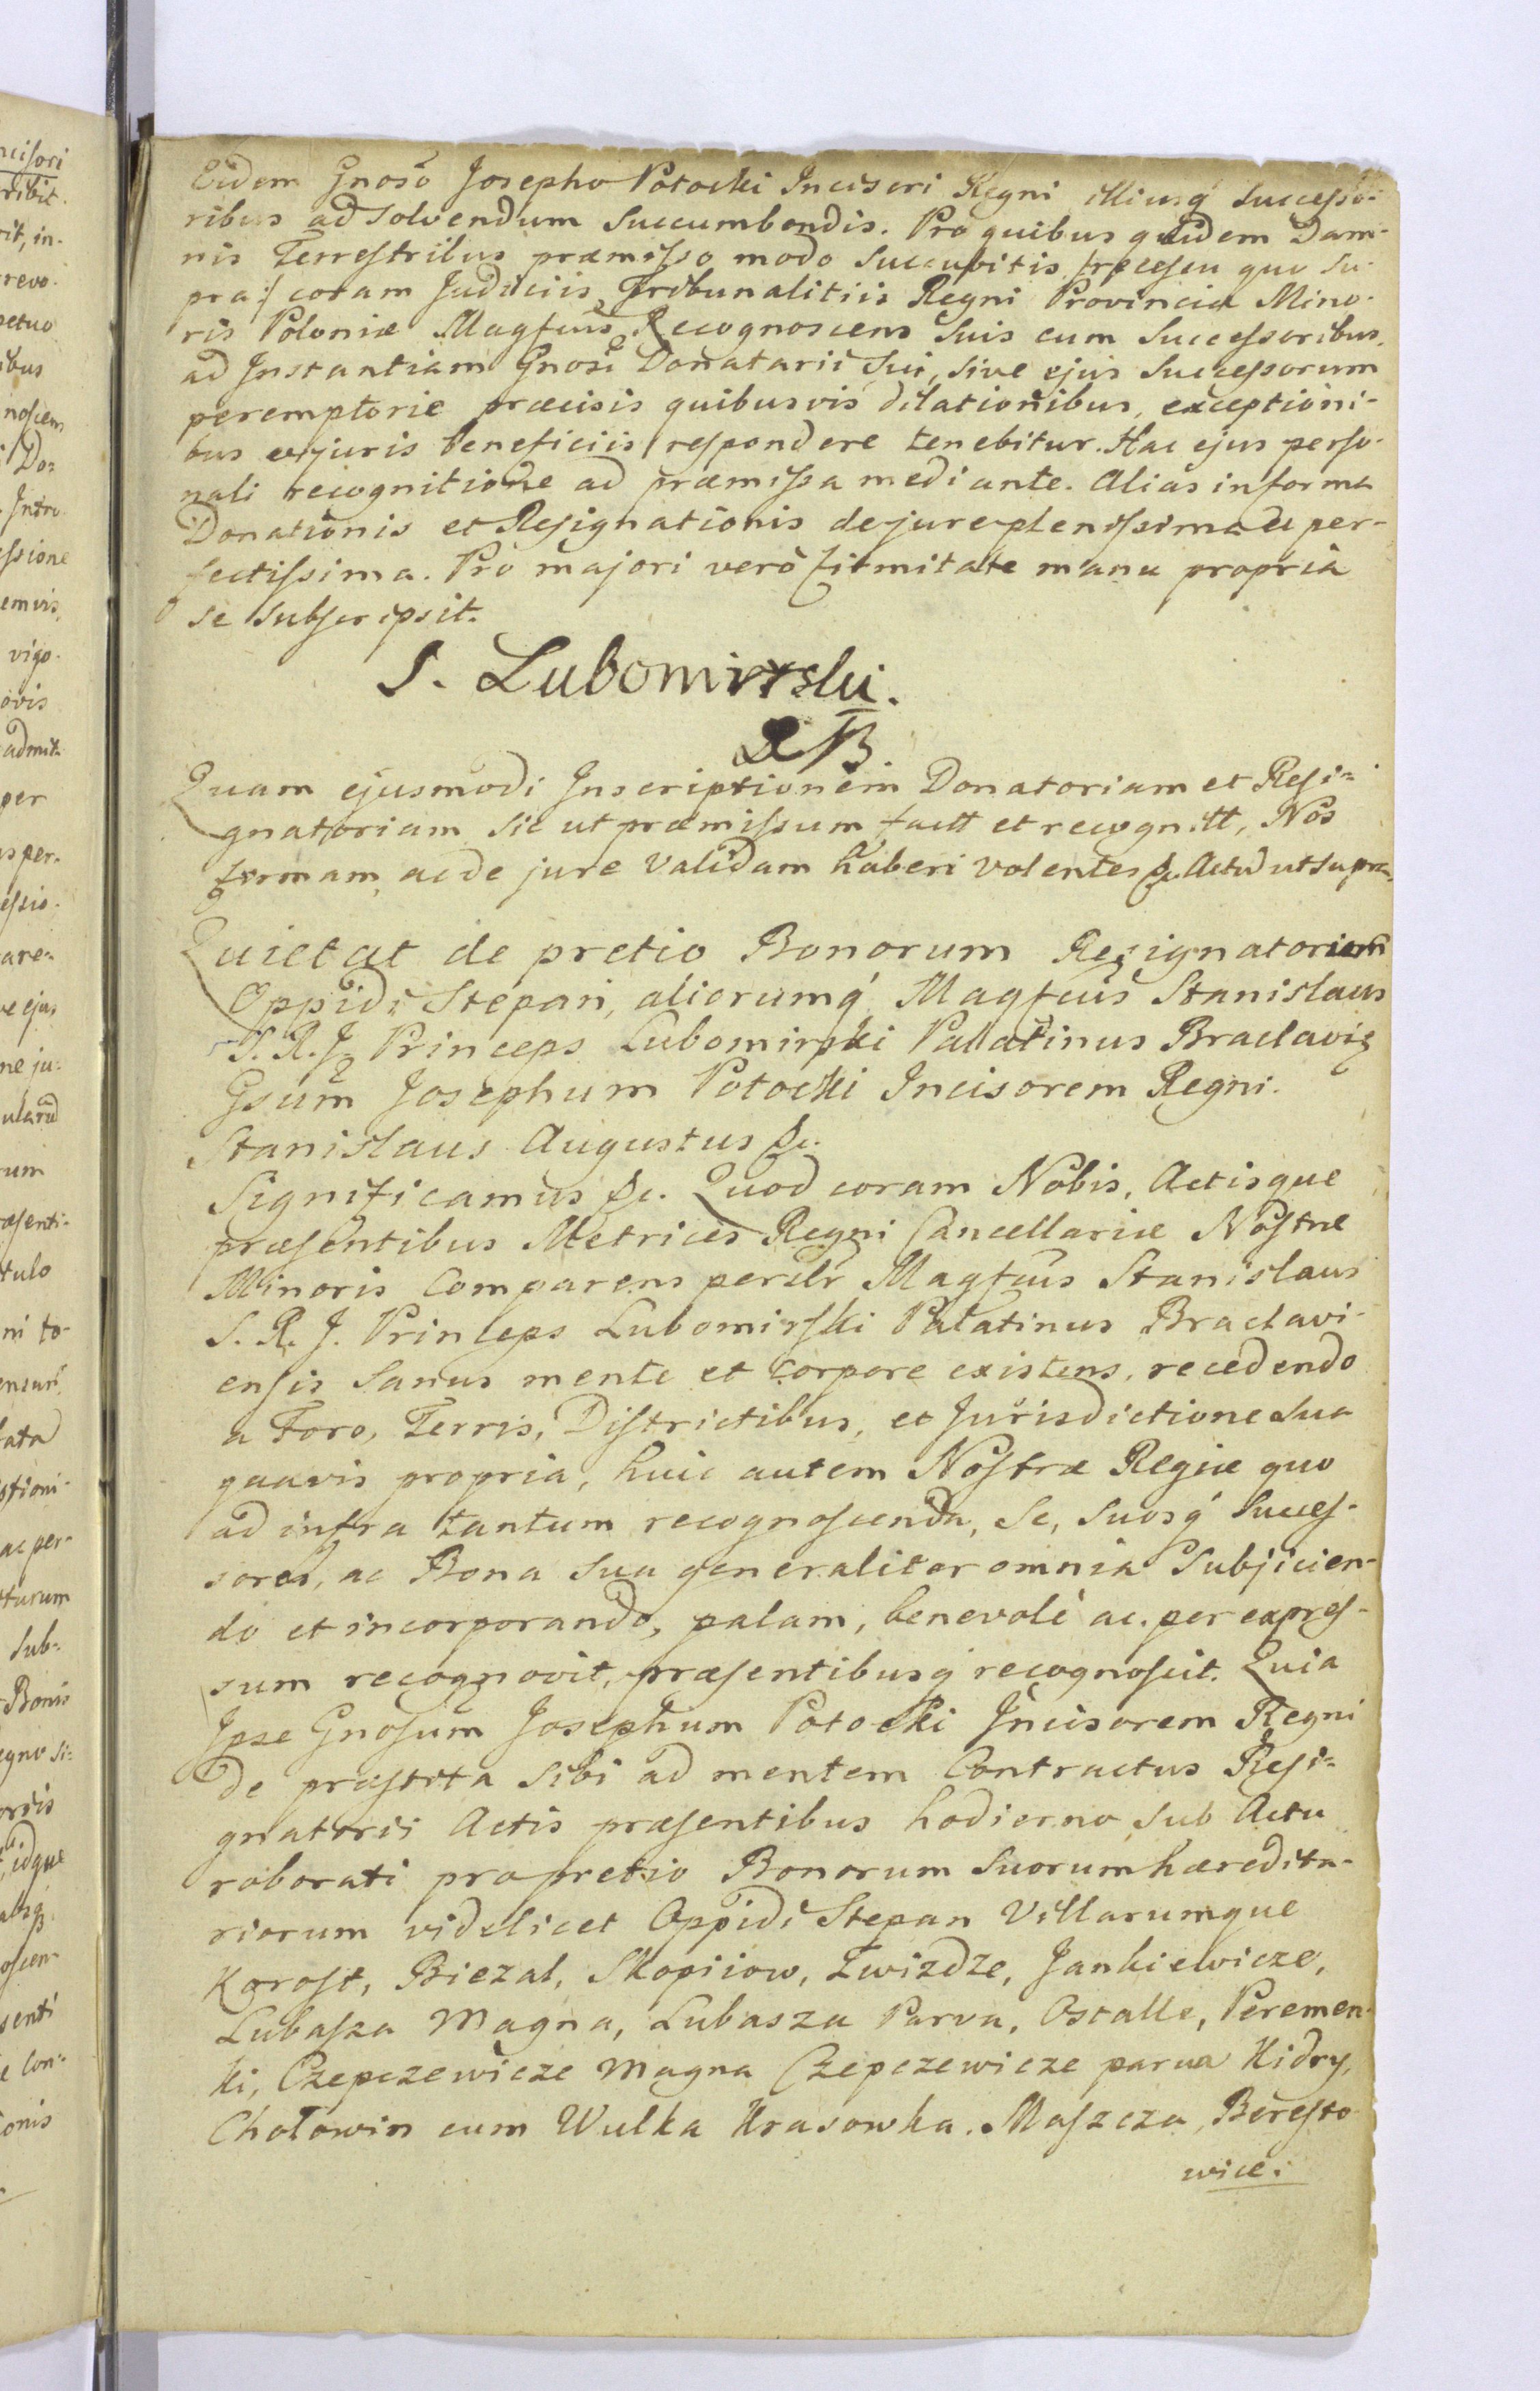 Eidem Gnoso Josepho Potocki Incisori Regni illiusq́ Successo-
ribus ad solvendum succumbendis. Pro quibus quidem Dam-
nis Terrestribus præmisso modo succubitis /: recessu quo su-
pra :/ coram Judiciis Tribunalitiis Regni Provinciæ Mino-
ris Poloniæ Magfcus Recognoscens suis cum Successoribus,
ad Instantiam Gnosi Donatarii sui, sive ejus Successorum
peremptorie præcisis quibusvis dilationibus, exceptioni-
bus et juris beneficiis respondere tenebitur. Hac ejus perso-
nali recognitione ad præmissa mediante. Alias in forma
Donationis et Resignationis de jure plenissima et per-
fectissima. Pro majori verò firmitate manu propria
se subscripsit.
S. Lubomirski.
Quam ejusmodi Inscriptionem Donatoriam et Resi-
gnatoriam sic ut præmissum factt et recognitt, Nos
firmam, ac de jure validam haberi volentes &c. Actu ut supra.
Quietat de pretio Bonorum Resignatorum
Oppidi Stepan, aliorumq́ Magfcus Stanislaus
S. R. J. Princeps Lubomirski Palatinus Braclaviæ
Gsum Josephum Potocki Incisorem Regni.
Stanislaus Augustus &c.
Significamus &c. Quod coram Nobis, Actisque
præsentibus Metrices Regni Cancellariæ Nostræ
Minoris Comparens persllr Magfcus Stanislaus
S. R. J. Princeps Lubomirski Palatinus Braclavi-
ensis sanus mente et corpore existens, recedendo
a Foro, Terris, Districtibus, et Jurisdictione sua
quavis propria, huic autem Nostræ Regiæ quo
ad infra tantum recognoscenda, se, suosq́ succes-
sores, ac Bona sua generaliter omnia subjicien-
do et incorporando, palam, benevolè ac per expres-
sum recognovit, præsentibusq́ recognoscit. Quia
Ipse Gnosum Josephum Potocki Incisorem Regni
de præstita sibi ad mentem Contractus Resi-
gnatorii Actis præsentibus hodierno sub Actu
roborati pro pretio Bonorum suorum hæredita-
riorum videlicet Oppidi Stepan Villarumque
Korost, Biezal, Skopiiow, Zwizdze, Jankiewicze,
Lubasza Magna, Lubasza Parva, Ostalle, Peremen-
ki, Czepczewicze Magna Czepczewicze parva Kidry,
Chołowin cum Wulka Krasowka. Maszcza, Beresto-
wice.